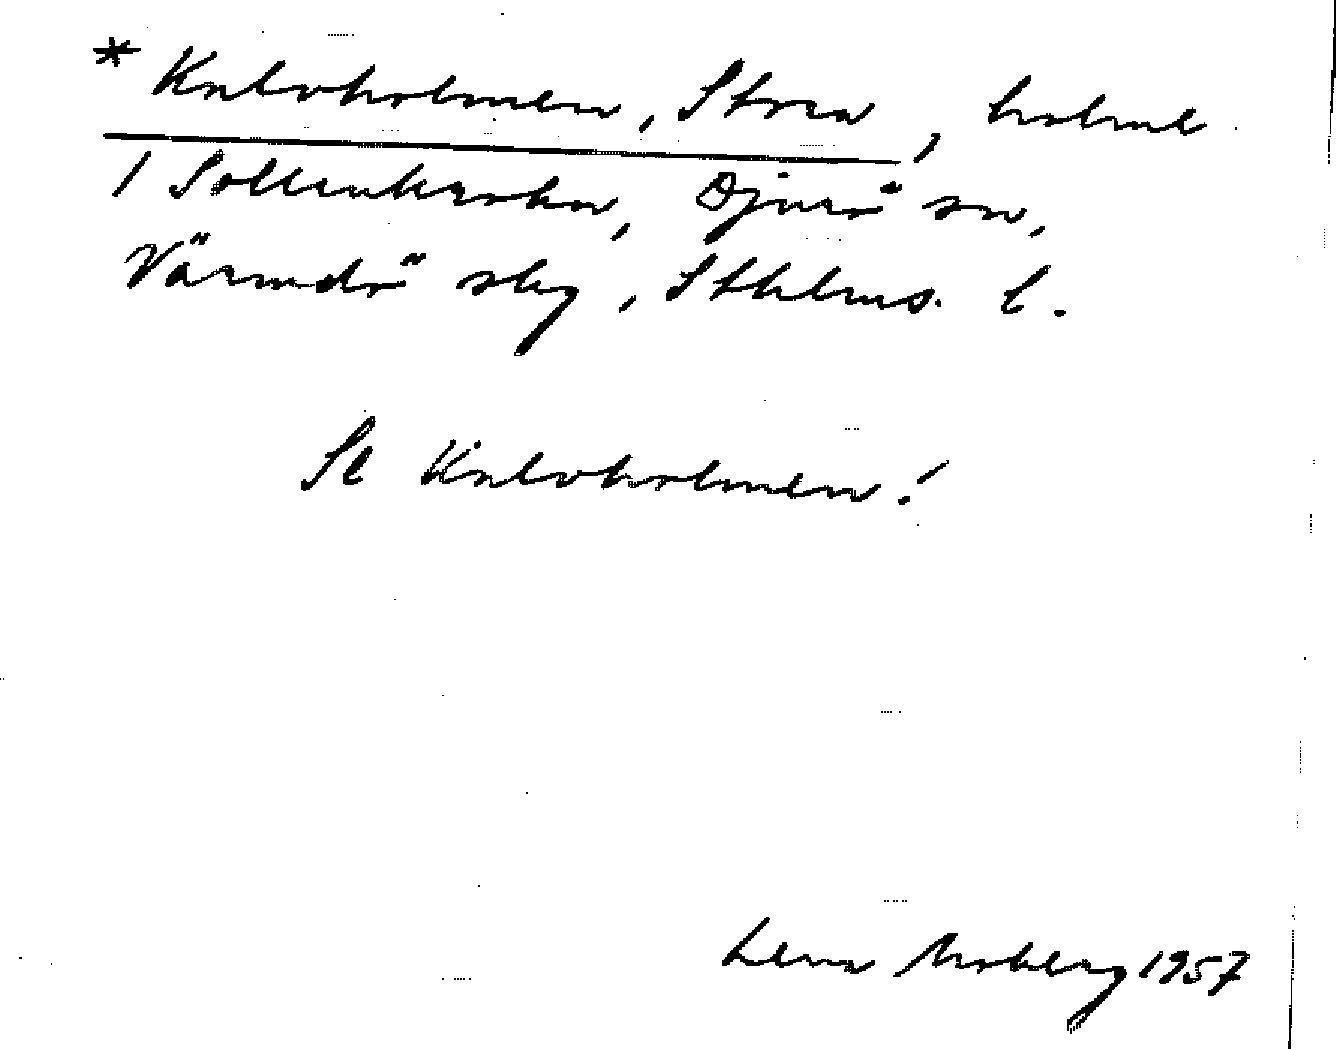 * Kalvholmen, Stora, holme
i Sollenkroka, Djurö sn,
Värmdö skg, Sthlms. l.
Se Kalvholmen!
Lena Moberg 1957